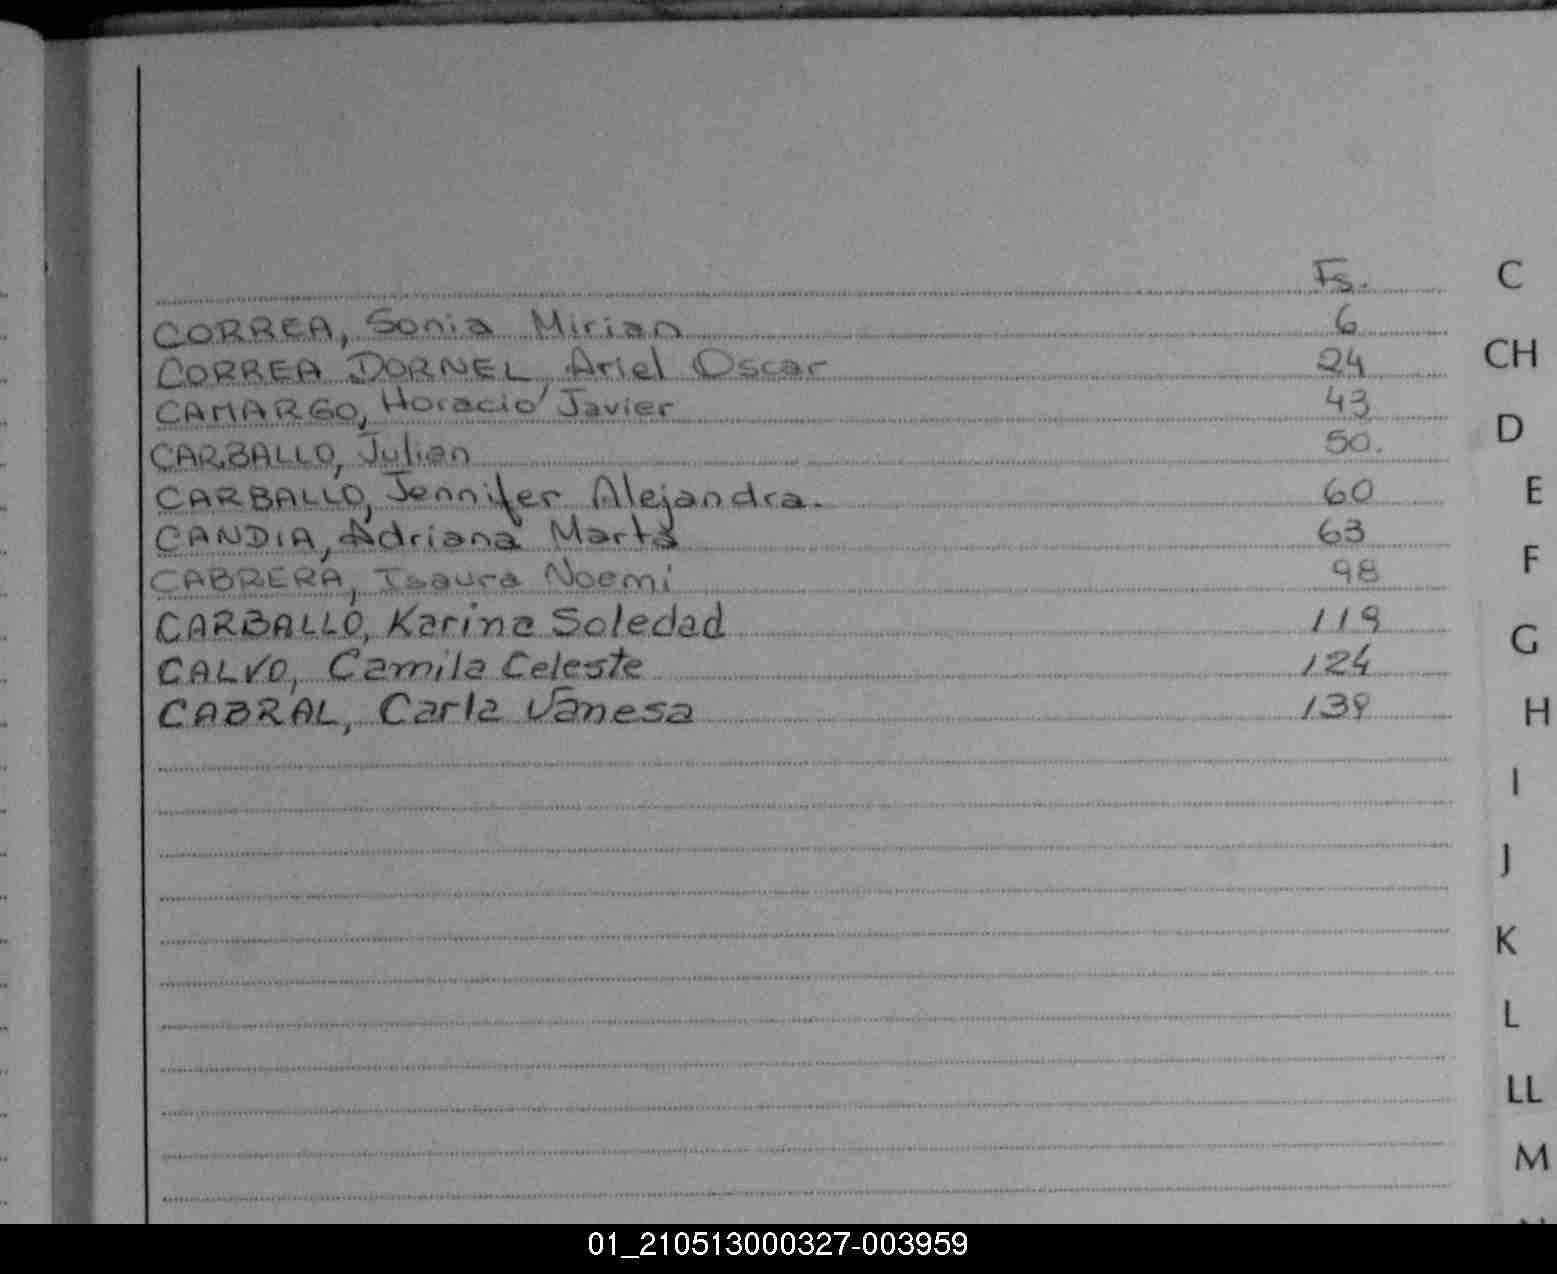 Fs.
CORREA, Sonia Mirian 6
CORREA DORNEL, Ariel Oscar 24
CAMARGO, Horacio Javier 43
CARBALLO, Julian 50.
CARBALLO, Jennifer Alejandra. 60
CANDIA, Adriana Marta 63
CABRERA, Isaura Noemi 98
CARBALLO, Karina Soledad 119
CALVO, Camila Celeste 124
CABRAL, Carla Vanesa 139
C
CH
D
E
F
G
H
I
J
K
L
LL
M
01_210513000327-003959